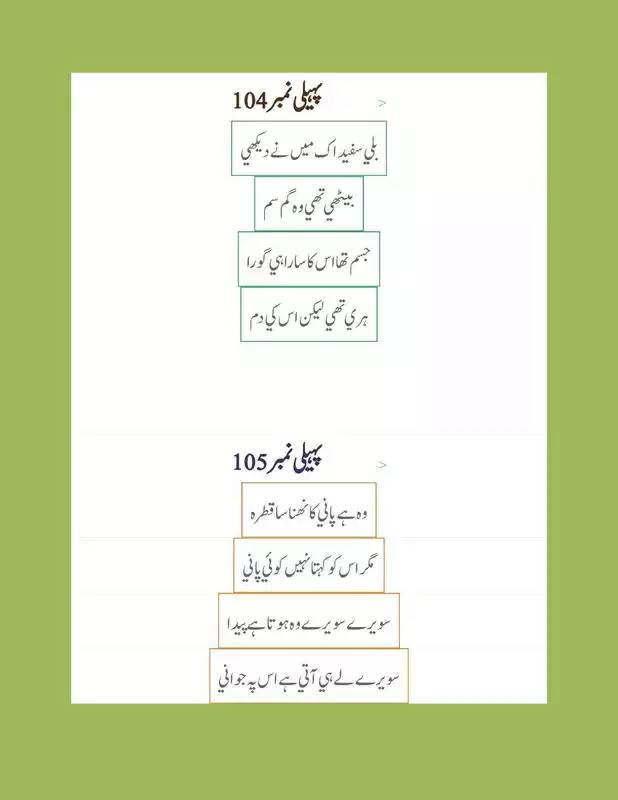 پہیلی نمبر 104
>
بلي سفيد اک ميں نے ديکھي
بيٹھي تھي وہ گم سم
جسم تھا اس کا سارا ہي گورا
ہري تھي ليکن اس کي دم
پہیلی نمبر 105
>
وہ ہے پاني کا ننھنا سا قطرہ
مگر اس کو کہتا نہيں کوئي پاني
سويرے سويرے وہ ہوتا ہے پيدا
سويرے لے ہي آتي ہے اس پہ جواني